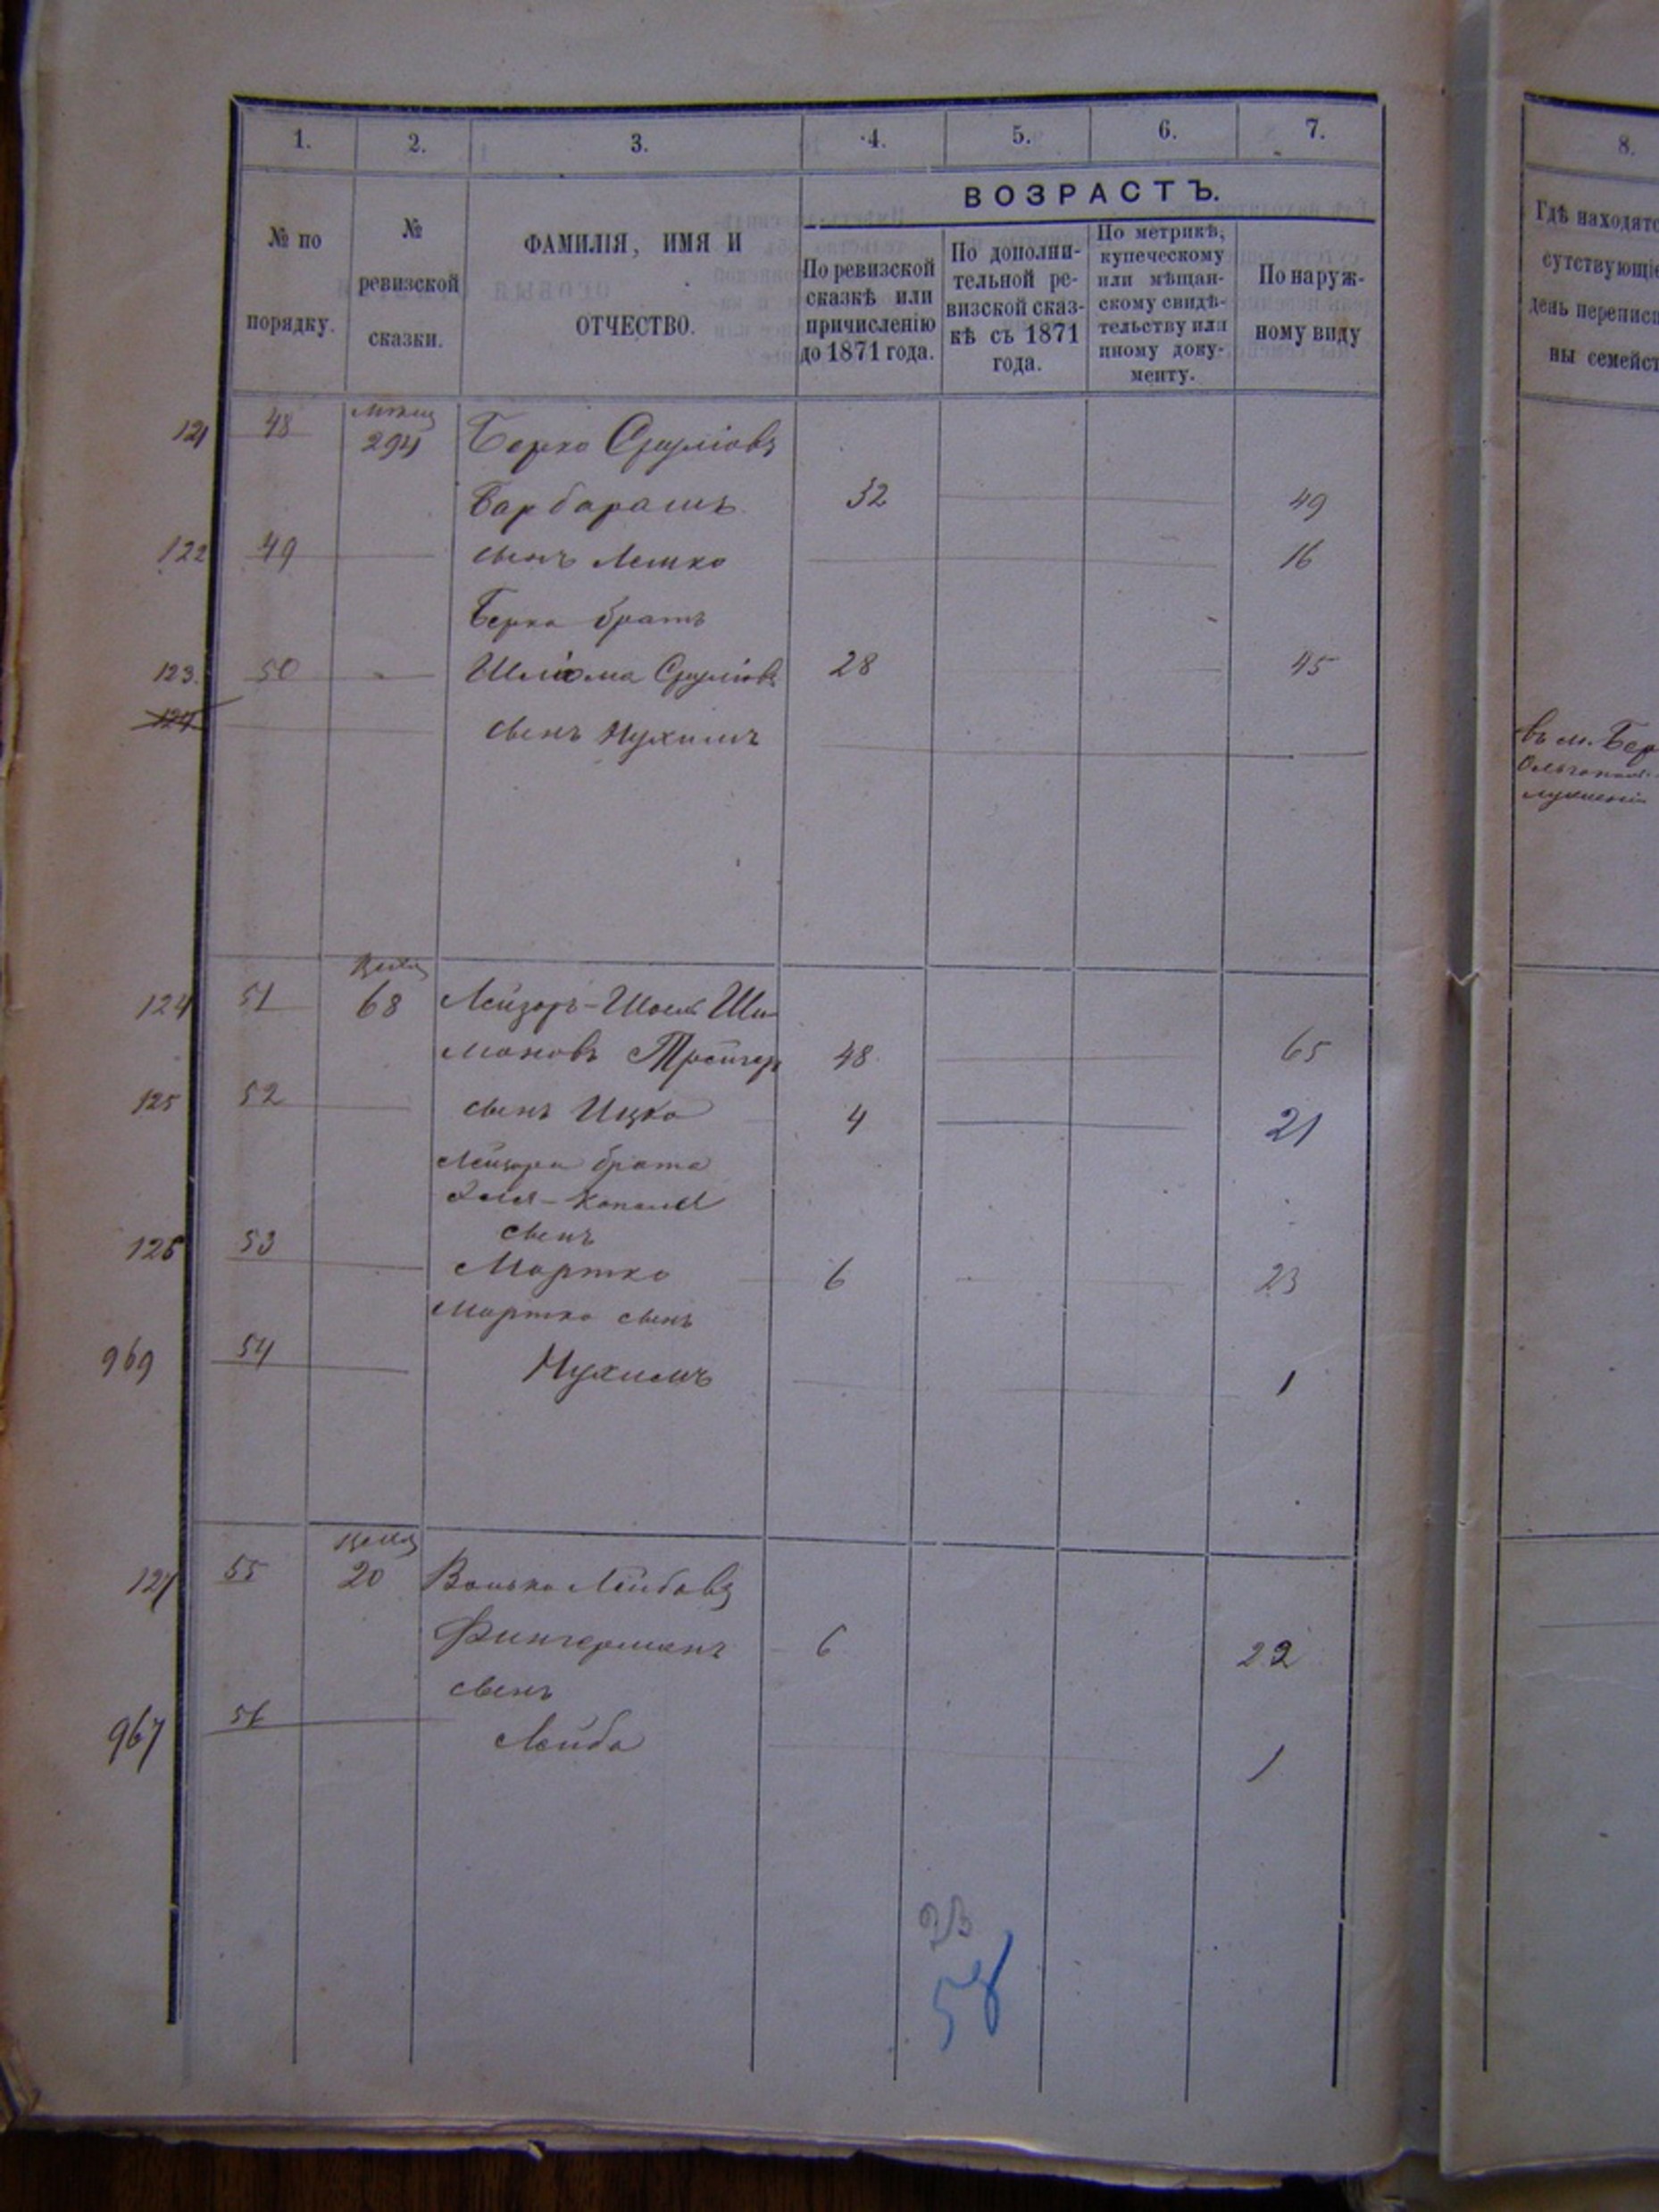 1. 2. 3. 4. 5. 6. 7.
ВОЗРАСТЪ.
№ по порядку.
№ ревизской сказки.
ФАМИЛІЯ, ИМЯ И ОТЧЕСТВО.
По ревизской сказкѣ или причисленію до 1871 года.
По дополни-
тельной ре-
визской сказ-
кѣ съ 1871
года.
По метрикѣ,
купеческому
или мѣщан-
скому свидѣ-
тельству или
иному доку-
менту.
По наруж-
ному виду
121 48 294 Берко Сруліовъ
Барбарашъ 32 49
122 49 сынъ Лешко 16
Берка братъ
123. 50 Шліома Сруліовъ 28 45
124 сынъ Нухимъ
124 51 68 Лейзоръ-Шоель Ши-
моновъ Трейгер 48 65
125 52 сынъ Ицко 4 21
Лейзора брата
сынъ
126 53 Мортко 6 23
Мортко сынъ
969 54 Нухимъ 1
127 55 20 Волько Лейбовъ
Фингерманъ 6 22
сынъ
967 56 Лейба 1
23
58
8.
Гдѣ находятс
сутствующіе
день переписи
ны семейст
въ м. Бер